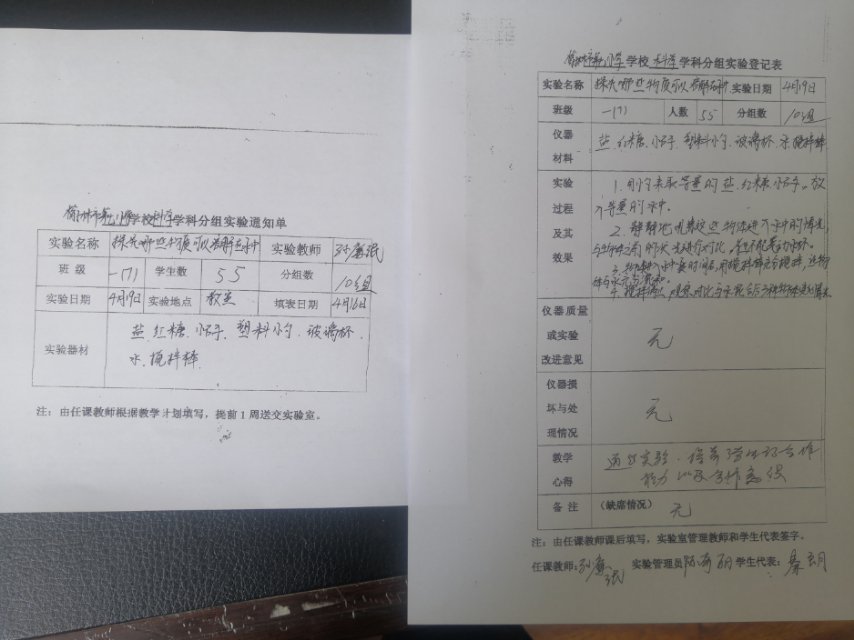 学校科学学科分组实验通知单
实验名称 探究哪些物质可以溶解在水中 实验教师
班 级 一(7) 学生数 55 分组数 10组
实验日期 4月19日 实验地点 教室 填表日期 4月16日
实验器材 盐、红糖、小石子、塑料小勺、玻璃杯、
水、搅拌棒.
注：由任课教师根据教学计划填写，提前1周送交实验室。
学校科学学科分组实验登记表
实验名称 探究哪些物质可以溶解在水中 实验日期 4月19日
班级 一(7) 人数 55 分组数 10组
仪器 材料 盐、红糖、小石子、塑料小勺、玻璃杯、水、搅拌棒
实验 过程 及其 效果
1. 用小勺来取等量的盐、红糖、小石子。放
入等量的水中。
2. 静静地观察这些物体进入水中的情况,
仪器质量 或实验 改进意见 无
仪器损 坏与处 理情况 无
教学 心得 通过实验，培养了学生的合作
能力以及合作意识
备 注 (缺席情况) 无
注：由任课教师课后填写，实验室管理教师和学生代表签字。
任课教师: 实验管理员 学生代表: